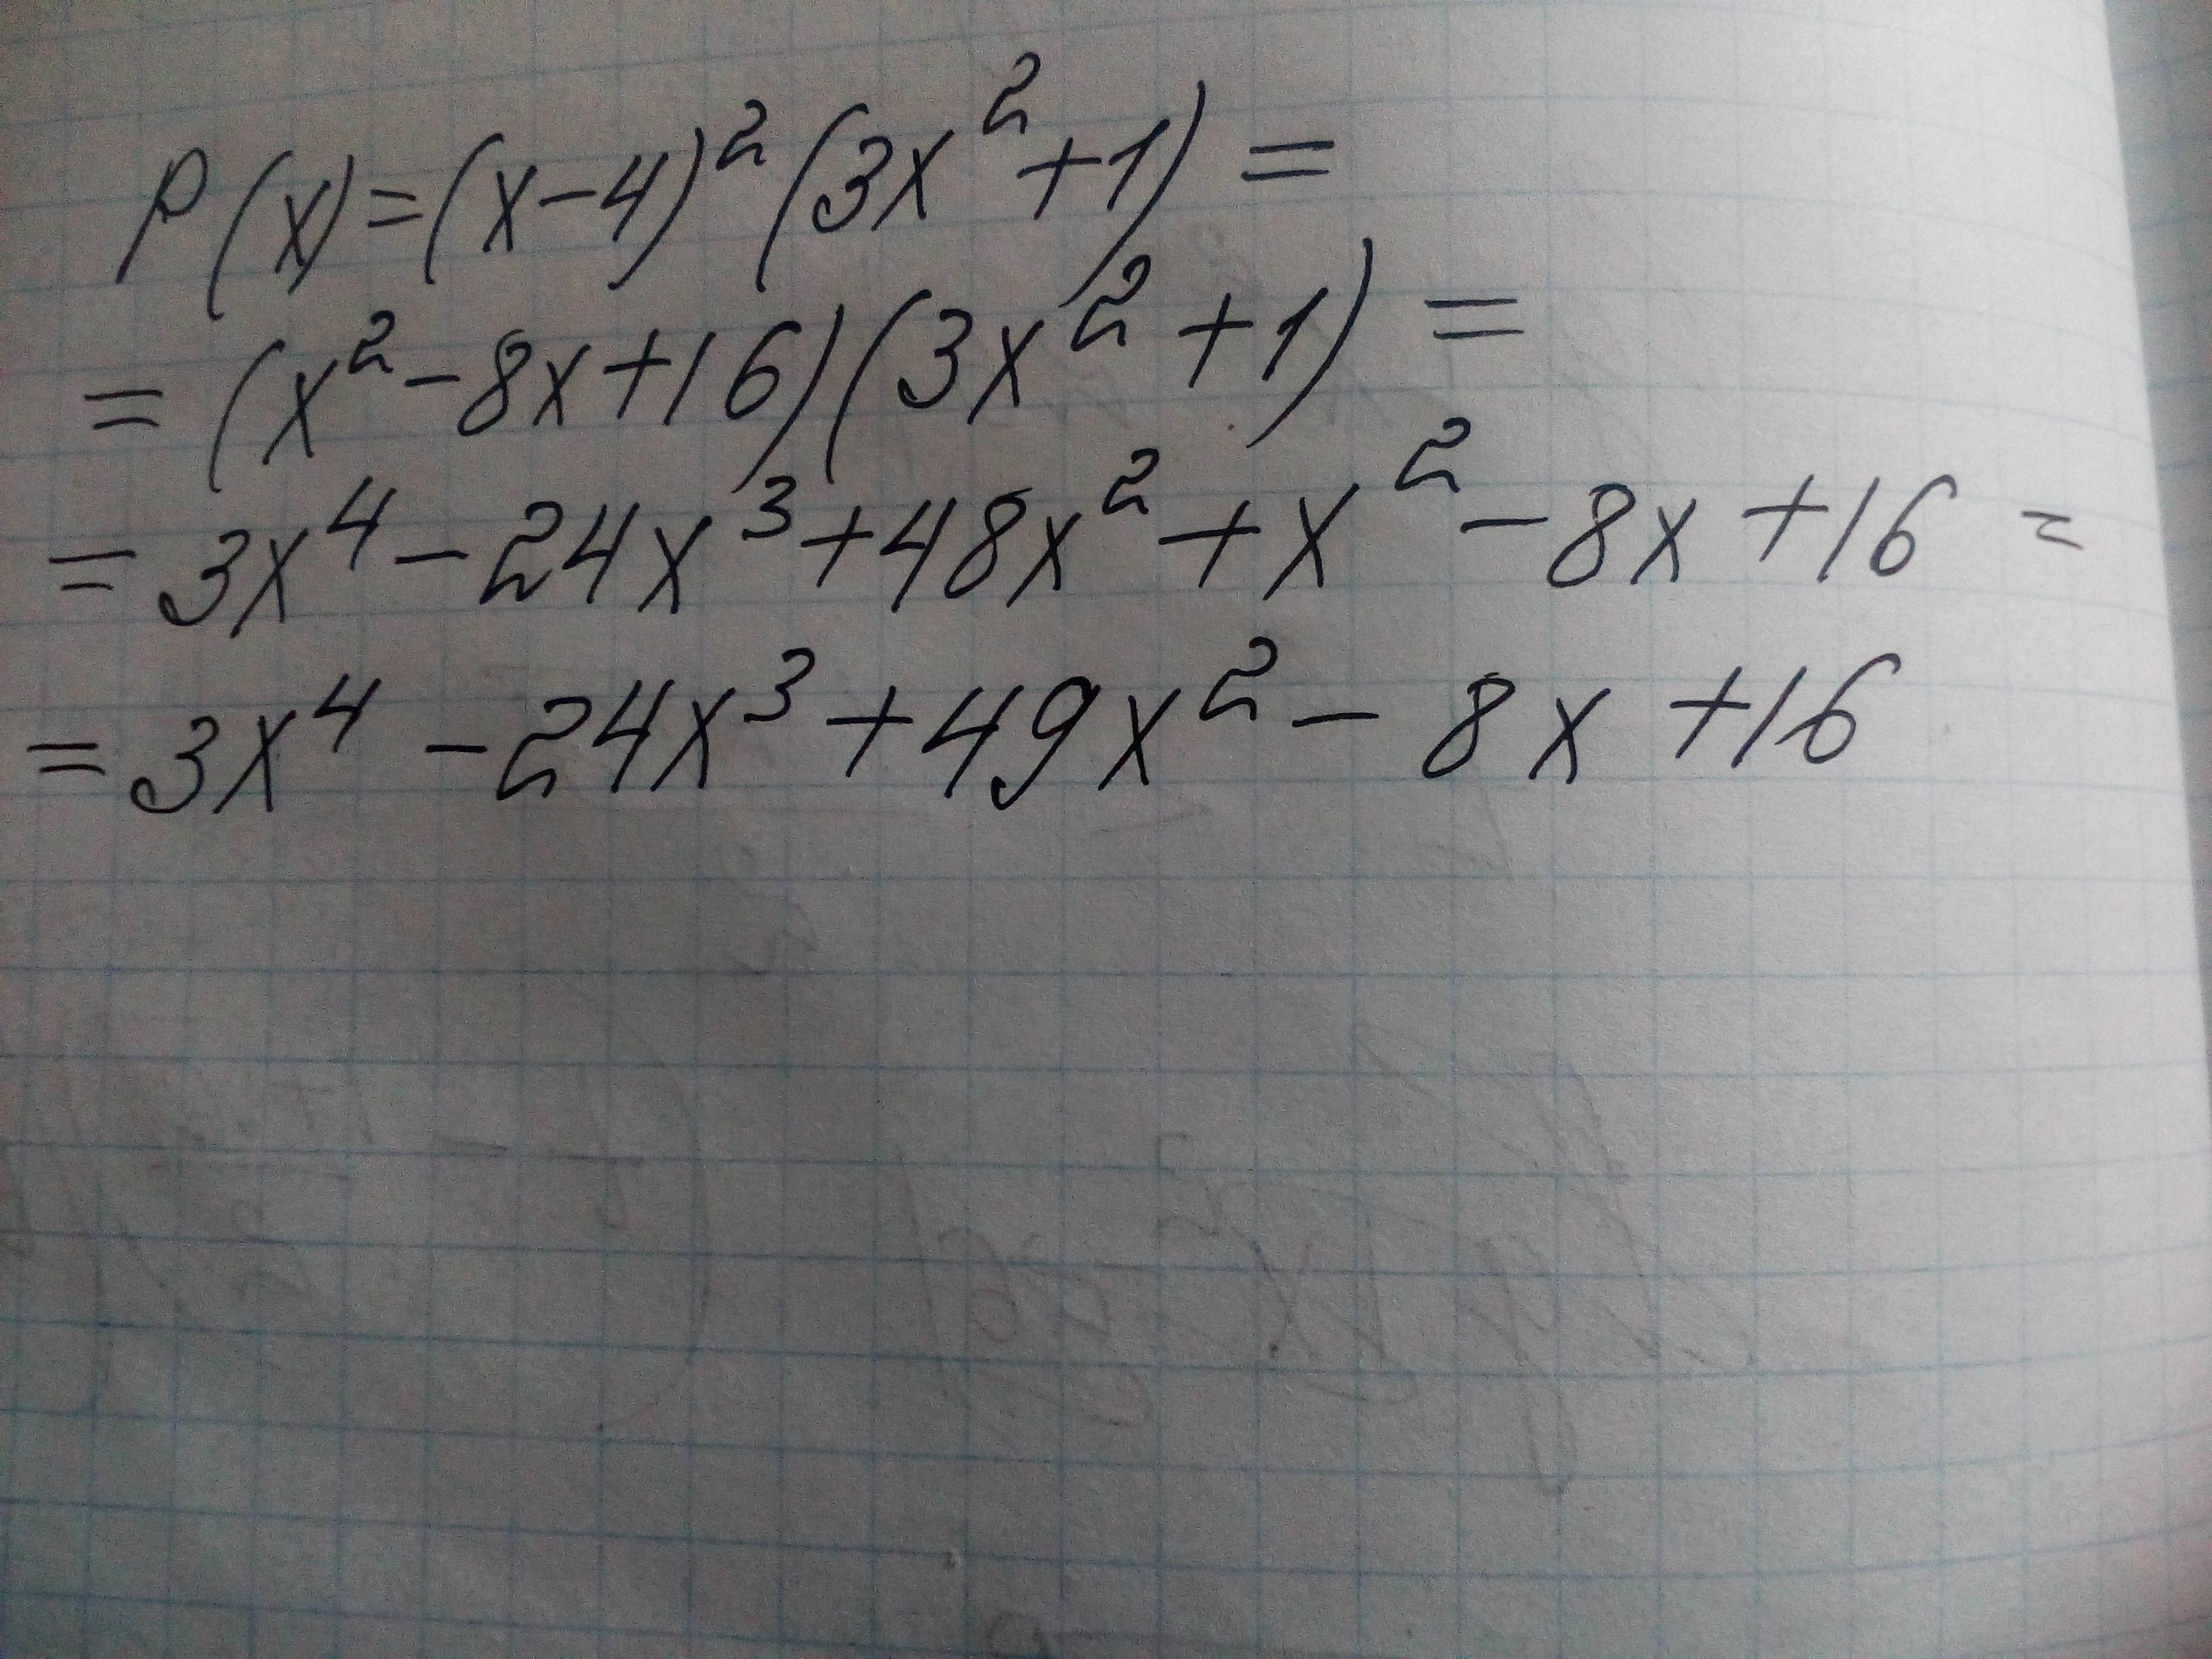 P(x)=(x-4)²(3x²+1)=
=(x²-8x+16)(3x²+1)=
=3x⁴-24x³+48x²+x²-8x+16=
=3x⁴-24x³+49x²-8x+16